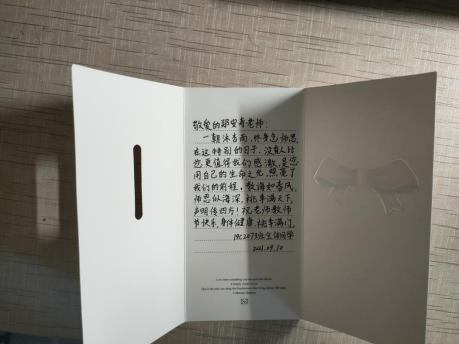 敬爱的邓安奇老师:
一朝沐杏雨,终身念师恩,
在这特别的日子,没有人比
您更值得我们感激,是您
用自己的生命之光,照亮了
我们的前程。教诲如春风,
师恩似海深,桃李满天下,
声明传四方!祝老师教师
节快乐,身体健康,桃李满门。
19C2073班全体同学
2021.09.10